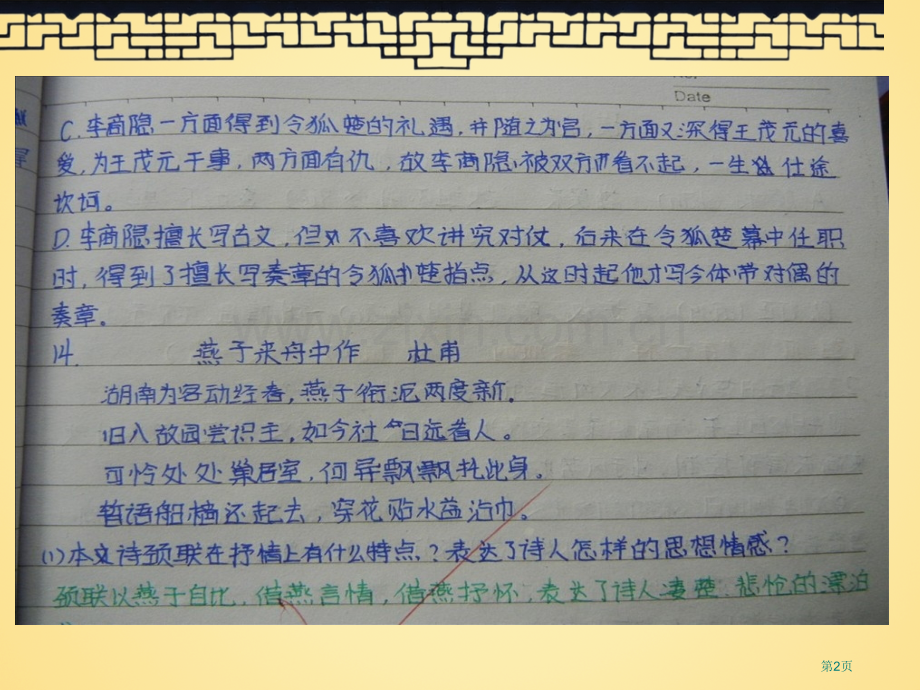 Date
C. 李商隐一方面得到令狐楚的礼遇，并随之为官，一方面又深得王茂元的喜
爱，为王茂元干事，两方面有仇，故李商隐被双方所看不起，一生仕途
坎坷。
D. 李商隐擅长写古文，但不喜欢讲究对仗，后来在令狐楚幕中任职
时，得到了擅长写奏章的令狐楚指点，从这时起他才写今体带对偶的
奏章。
14. 燕子来舟中作 杜甫
湖南为客动经春，燕子衔泥两度新。
旧入故园尝识主，如今社日远看人。
可怜处处巢居室，何异飘飘托此身。
暂语船樯还起去，穿花贴水益沾巾。
(1)本文诗颈联在抒情上有什么特点？表达了诗人怎样的思想情感？
颈联以燕子自比，借燕言情，借燕抒怀，表达了诗人凄楚、悲怆的漂泊
第2页